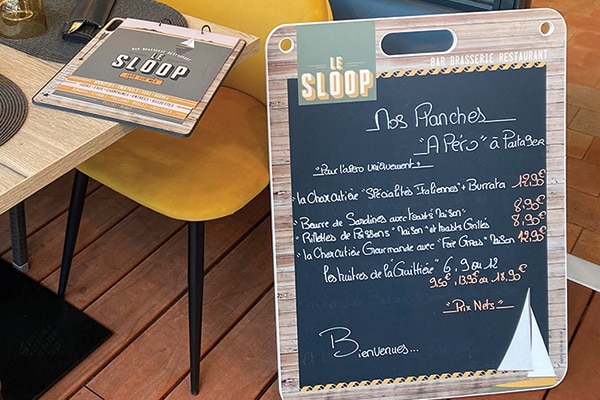 BAR BRASSERIE RESTAURANT
LE
SLOOP
LE
SLOOP
BAR BRASSERIE RESTAURANT
Nos Planches
"Apéro" à Partager
"Pour l'apéro uniquement"
la Charcutière "Spécialités Italiennes" + Burrata
"Beurre de Sardines avec toasts" Maison" 6,90€
"Rillettes de Poissons" Maison" et toasts Grillés 8,90€
la Charcutière Gourmande avec "Foie Gras" Maison 12,95€
les huîtres de la Guittière" 6, 9 ou 12
9.50€, 13.95€ ou 18.90€
"Prix Nets"
Bienvenues...